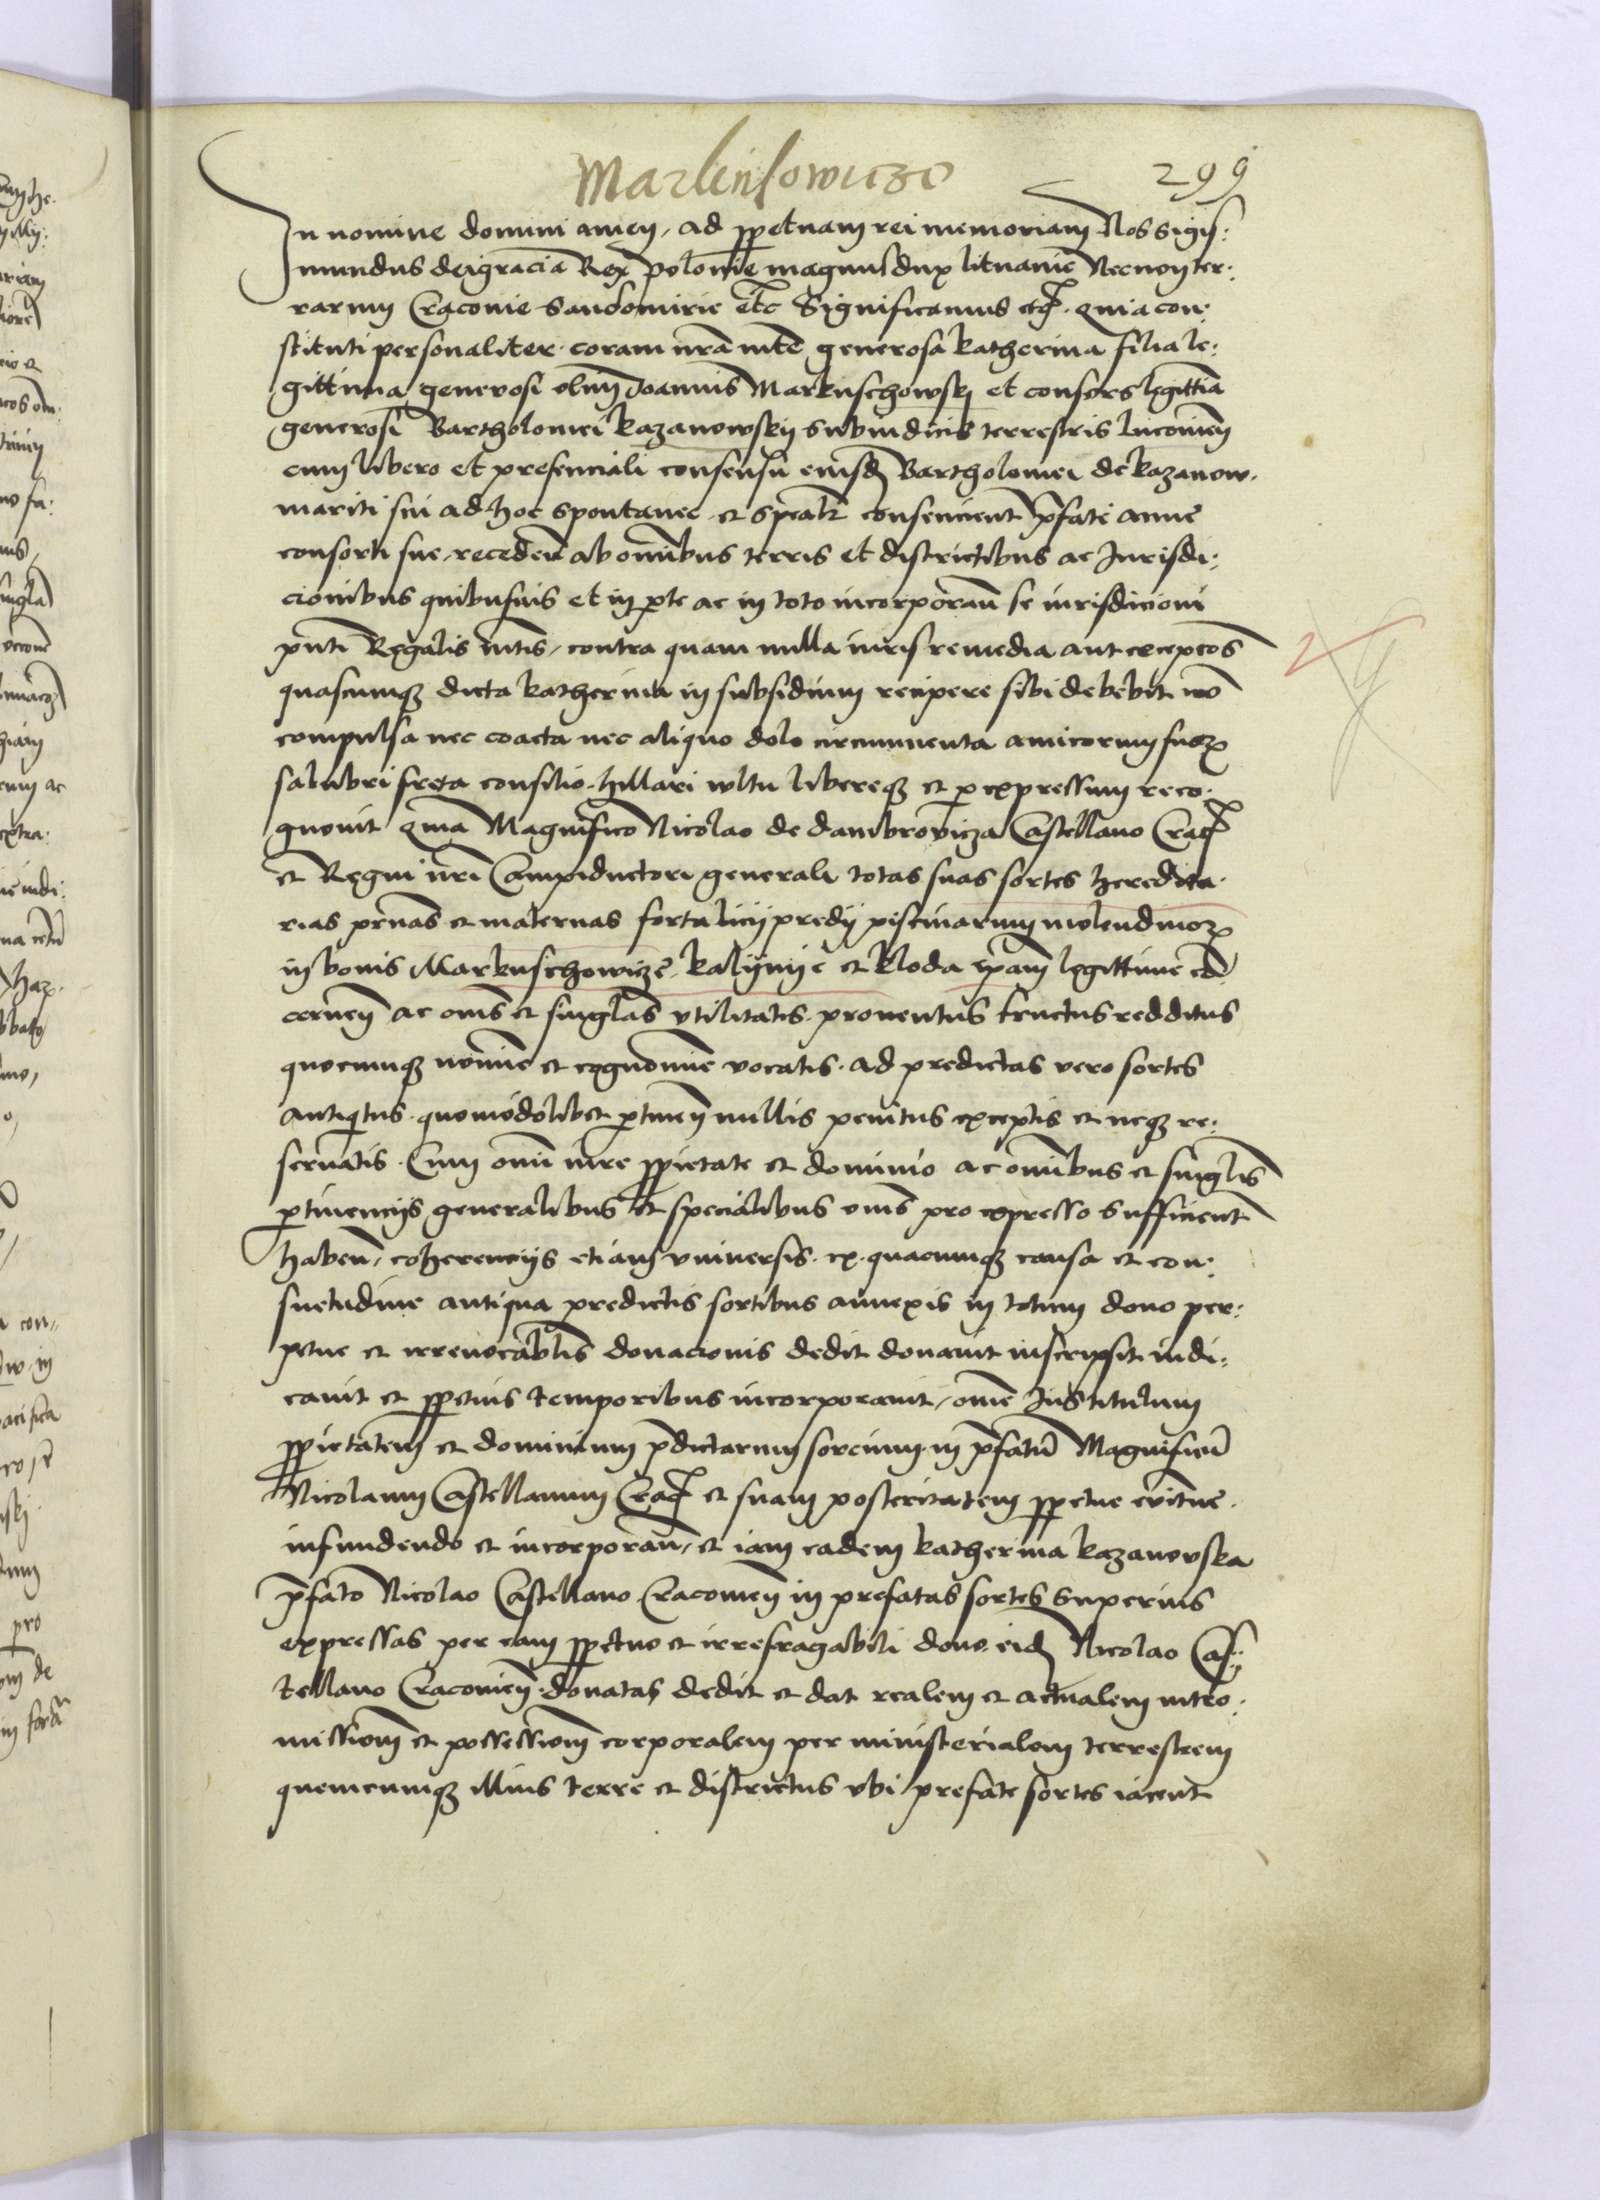 Markuſowicze
299
In nomine domini amen, ad ꝑpetuam rei memoriam Nos Sigis:
mundus dei gracia Rex polonie magnus dux lituanie Necnon ter:
rarum Cracovie Sandomirie etc Significamus etc. quia con:
stituti personaliter coram nrã mtẽ generosa katherina filia le:
gittima generosi olim Joannis Markuschowskj et consors legittia
generosi Bartholomei kazanowskij Subiudicis terrestris lucovien̄
cum libero et presenciali consensu eiusdꝫ Bartholomei de kazanow.
mariti sui ad hoc spontanee et specialr̃ consencient p̄fate anne
consorti sue, receden̄ ab omībus terris et districtibus ac Jurisdi:
cionibus quibus suis et in ꝑte ac in toto incorporan̄ se iurisdicioni
pn̄ti Regalis mtis, contra quam nulla iuris remedia aut excepcōs
quascumqꝫ dicta katherina in subsidium recipere sibi debebit nō
compulsa nec coacta nec aliquo dolo circumuenta amicorum suoꝝ
salubri freta consilio hillari wltu libereqꝫ et ꝑ expressum reco:
gnouit quia Magnifico Nicolao de dambrovicza Castellano Crac
et Regni nrĩ Campiductori generali totas suas sortes heredita
rias pr̄nas et maternas fortalicij predij piscinarum molendinoꝝ
in bonis Markuschowicze kalynije et kloda ip̄am legittime cō
cernen̄ ac om̄s et singlas vtilitates prouentus fructus redditus
quocumqꝫ nomine et cognomine vocatis. ad predictas vero sortes
antiqitus quomodolibet ꝑtinen̄ nullis penitus exceptis et neqꝫ re:
seruatis. Cum omni iure ꝓprietate et dominio ac omībus et singlis
ꝑtinencijs generalibus et specialibus om̄s pro expresso sufficient
haben̄, coherencijs etiam vniuersis ex quacumqꝫ causa et con:
suetudine antiqua predictis sortibus annexis in totum dono per:
petue et irreuocablis donacionis dedit donauit inscripsit indi:
cauit et ꝑpetuis temporibus incorporauit, om̄e Jus titulum
ꝓprietatem et dominium p̄dictarum sorcium in p̄fatū Magnificū
Nicolaum Castellanum Crac et suam posteritatem ꝑpetue evitne
infundendo et incorporan̄, et iam eadem katherina kazanovska
p̄fato Nicolao Castellano Cracovien̄ in prefatas sortes Superius
expressas per eam ꝑpetuo et irrefragabili dono eidꝫ Nicolao Cas:
tellano Cracovien̄ donatas dedit et dat realem et actualem intro:
missionē et possessionē corporalem per ministerialem terrestrem
quemcumqꝫ illius terre et districtus vbi prefate sortes iacent